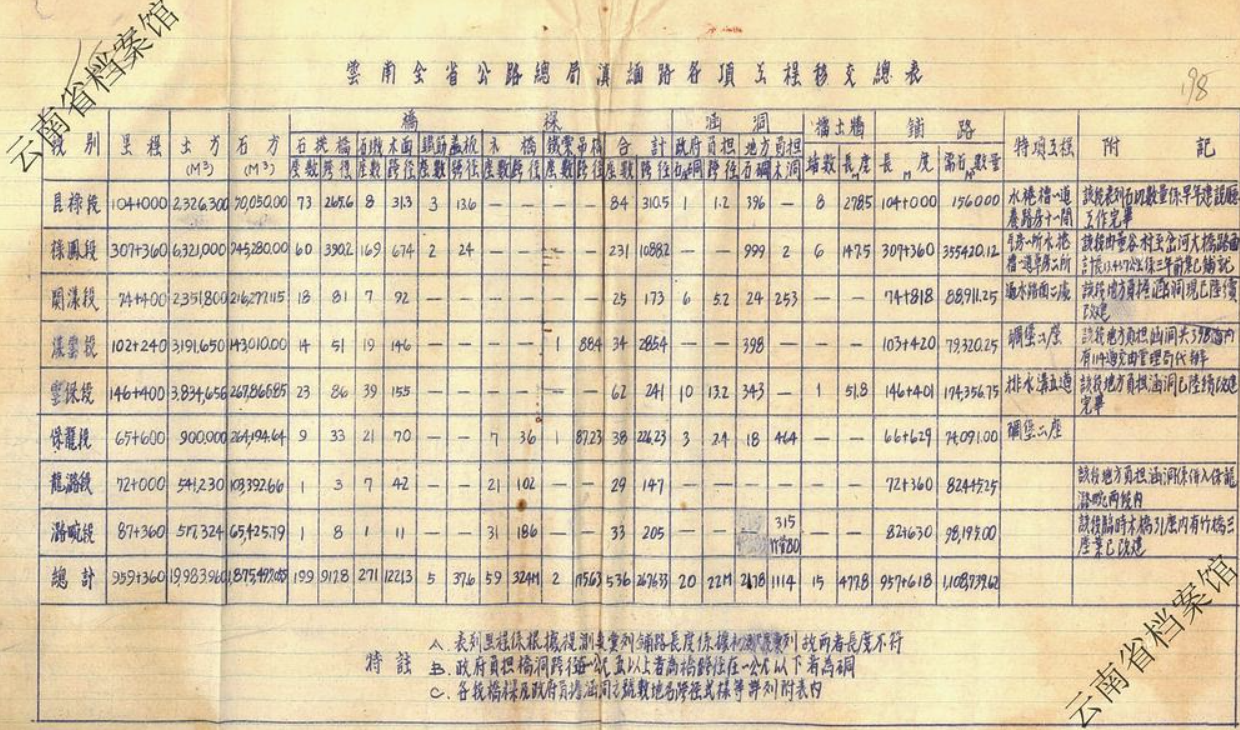 云南省档案馆
198
雲南全省公路總局滇緬路各項工程移交總表
段別 里程 土方(M³) 石方(M³) 橋樑 涵洞 擋土牆 鋪路 特項工程 附記
石拱橋 石墩木面 鋼筋蓋板 木橋 鐵索吊橋 合計 政府負担 地方負担
座數 跨徑 座數 跨徑 座數 跨徑 座數 跨徑 座數 跨徑 座數 跨徑 石硐 跨徑 石硐 木洞 堵數 長度 長度 數量
昆祿段 104+000 2,326,300 70,050.00 73 265.6 8 31.3 3 13.6 — — — — 84 310.5 1 1.2 396 — 8 278.5 104+000 156000 水槽一道
工作完畢
祿鳳段 307+360 6,321,000 745,280.00 60 390.2 169 674 2 24 — — — — 231 1088.2 — — 999 2 6 147.5 307+360 355420.12
關漾段 74+400 2,351,800 216,277.115 18 81 7 92 — — — — — — 25 173 6 5.2 24 253 — — 74+818 88,911.25 過水路面二處 該段地方負担涵洞現已陸續
改建
漾雲段 102+240 3,191,650 143,010.00 14 51 19 146 — — — — 1 88.4 34 285.4 — — 398 — — — 103+420 79,320.25 碉堡二座 該段地方負担涵洞共398道內
有114道交由管理局代辦
雲保段 146+400 3,834,656 267,866.85 23 86 39 155 — — — — — — 62 241 10 13.2 343 — 1 51.8 146+401 174,356.75 排水溝五道 該段地方負担涵洞已陸續改建
完畢
保龍段 65+600 900,000 264,194.64 9 33 21 70 — — 7 36 1 87.23 38 226.23 3 2.4 18 464 — — 66+629 74,091.00 碉堡二座
龍潞段 72+000 541,230 103,392.66 1 3 7 42 — — 21 102 — — 29 147 — — — — — — 72+360 82445.25 該段地方負担涵洞係併入保龍
潞畹兩段內
潞畹段 87+360 517,324 65,425.79 1 8 1 11 — — 31 186 — — 33 205 — — 315 — — 82+630 98,195.00 該段臨時木橋31座內有竹橋三
座業已改建
總計 959+360 19,983,960 1,875,497.05 199 917.8 271 1221.3 5 37.6 59 324M 2 175.63 536 2676.33 20 22M 2178 1114 15 477.8 957+618 1,108,739.62
特註
A. 表列里程係根據 測 彙列鋪路長度係據 彙列故兩者長度不符
B. 政府負担橋洞跨徑在一公尺五以上者為橋跨徑在一公尺以下者為硐
C. 各段橋樑及政府負擔涵洞之號數地名跨徑式樣等詳列附表內
云南省档案馆